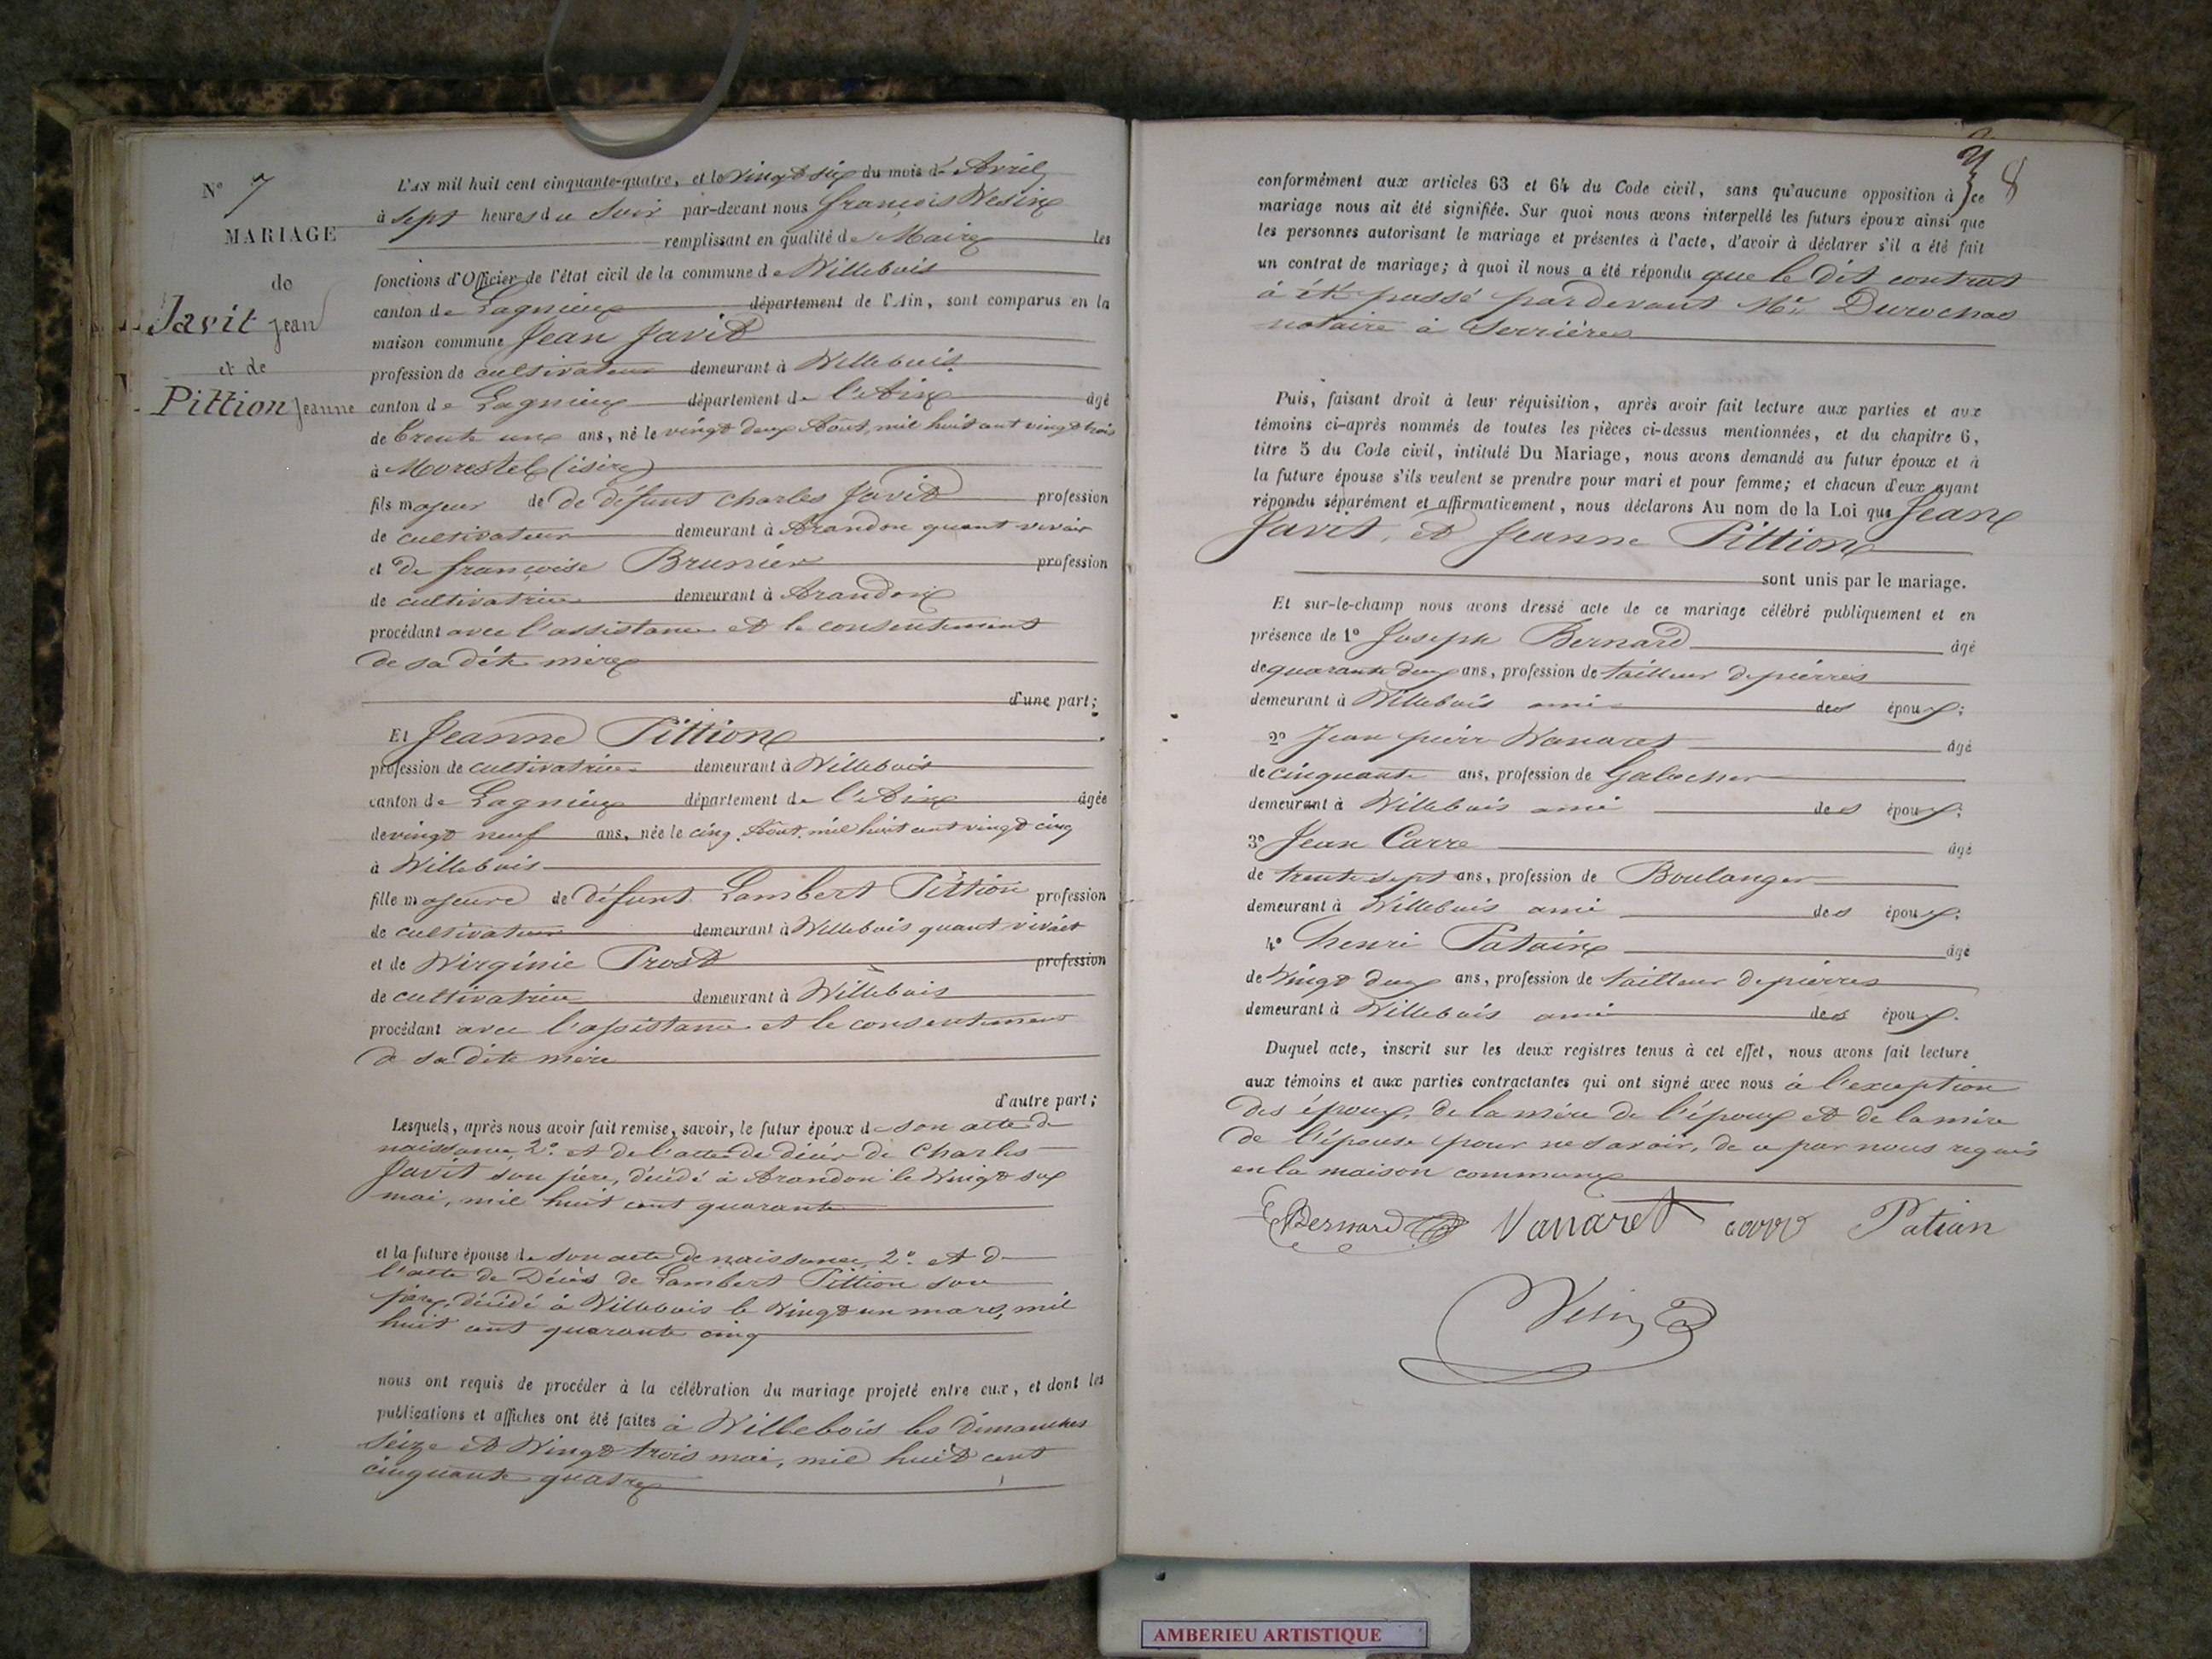 N° 7
MARIAGE
de
Javit Jean
et de
Pittion Jeanne
L'AN mil huit cent cinquante-quatre, et le vingt six du mois d'Avril
à sept heures du Soir par-devant nous françois Vesin
remplissant en qualité de Maire les
fonctions d'Officier de l'état civil de la commune de Villebois
canton de Lagnieu département de l'Ain, sont comparus en la
maison commune Jean Javit
profession de cultivateur demeurant à Villebois
canton de Lagnieu département de l'Ain âgé
de trente un ans, né le vingt deux Août, mil huit cent vingt trois
à Morestel (isire)
fils majeur de de défunt charles Javit profession
de cultivateur demeurant à Arandon quant vivair
et de françoise Brunier profession
de cultivatrice demeurant à Arandon
procédant avec l'assistance et le consentement
de sa dite mère
d'une part;
Et Jeanne Pittion
profession de cultivatrice demeurant à Villebois
canton de Lagnieu département de l'Ain âgée
de vingt neuf ans, née le cinq Août, mil huit cent vingt cinq
à Villebois
fille majeure de défunt Lambert Pittion profession
de cultivateur demeurant à Villebois quant vivait
et de Virginie Prost profession
de cultivatrice demeurant à Villebois
procédant avec l'assistance et le consentement
de sa dite mère
d'autre part;
Lesquels, après nous avoir fait remise, savoir, le futur époux de son acte de
naissance, 2° et de l'acte de décès de Charles
Javit son père, décédé à Arandon le vingt six
mai, mil huit cent quarante
et la future épouse de son acte de naissance, 2° et d
l'acte de Décès de Lambert Pittion son
père, décédé à Villebois le vingt un mars, mil
huit cent quarante cinq
nous ont requis de procéder à la célébration du mariage projeté entre eux, et dont les
publications et affiches ont été faites à Villebois les Dimanches
seize et vingt trois mai, mil huit cent
cinquante quatre
8
conformément aux articles 63 et 64 du Code civil, sans qu'aucune opposition à ce
mariage nous ait été signifiée. Sur quoi nous avons interpellé les futurs époux ainsi que
les personnes autorisant le mariage et présentes à l'acte, d'avoir à déclarer s'il a été fait
un contrat de mariage; à quoi il nous a été répondu que le dit contrat
à été passé par devant Me Durochas
notaire à Serrières
Puis, faisant droit à leur réquisition, après avoir fait lecture aux parties et aux
témoins ci-après nommés de toutes les pièces ci-dessus mentionnées, et du chapitre 6,
titre 5 du Code civil, intitulé Du Mariage, nous avons demandé au futur époux et à
la future épouse s'ils veulent se prendre pour mari et pour femme; et chacun d'eux ayant
répondu séparément et affirmativement, nous déclarons Au nom de la Loi que Jean
Javit, et Jeanne Pittion
sont unis par le mariage.
Et sur-le-champ nous avons dressé acte de ce mariage célébré publiquement et en
présence de 1° Joseph Bernard âgé
de quarante deux ans, profession de tailleur de pierres
demeurant à Villebois ami des époux;
2° Jean pierre Vanaret âgé
de cinquante ans, profession de
demeurant à Villebois ami des époux;
3° Jean Carre âgé
de trente sept ans, profession de Boulanger
demeurant à Villebois ami des époux;
4° henri Patain âgé
de vingt deux ans, profession de tailleur de pierres
demeurant à Villebois ami des époux.
Duquel acte, inscrit sur les deux registres tenus à cet effet, nous avons fait lecture
aux témoins et aux parties contractantes qui ont signé avec nous à l'exception
des époux, de la mère de l'époux et de la mère
de l'épouse pour ne savoir, de ce par nous requis
en la maison commune
Bernard Vanaret carre Patian
Vesin
AMBERIEU ARTISTIQUE